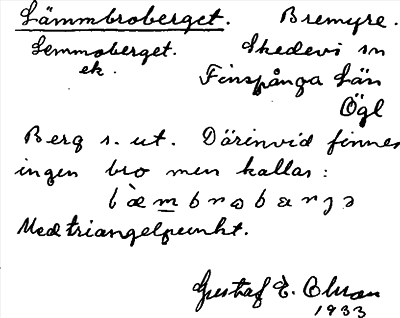 Lämmbroberget. Bremyre.
Lemmoberget. Skedevi sn
ek. Finspånga län
Ögl
Berg s. ut. Därinvid finnes
ingen bro men kallas:
Med triangelpunkt.
Gustaf E. Olson
1933